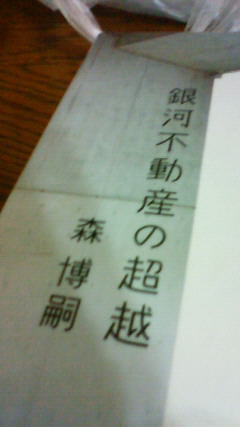 銀河不動産の超越
森博嗣